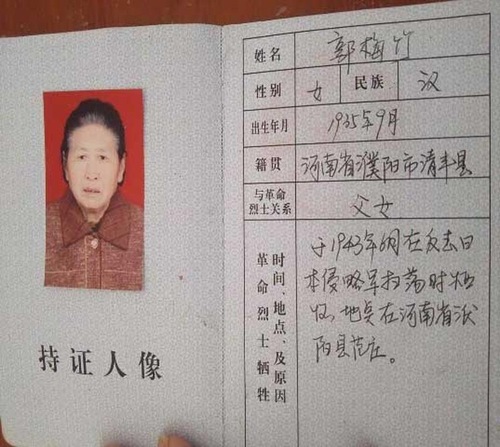 持证人像
姓名 郭梅竹
性别 女 民族 汉
出生年月 1935年9月
籍贯 河南省濮阳市清丰县
与革命
烈士关系 父女
革命烈士牺牲
时间、地点、及原因
于1943年 在反击日
本侵略军扫荡时牺
牲,地点在河南省
阳县范庄。